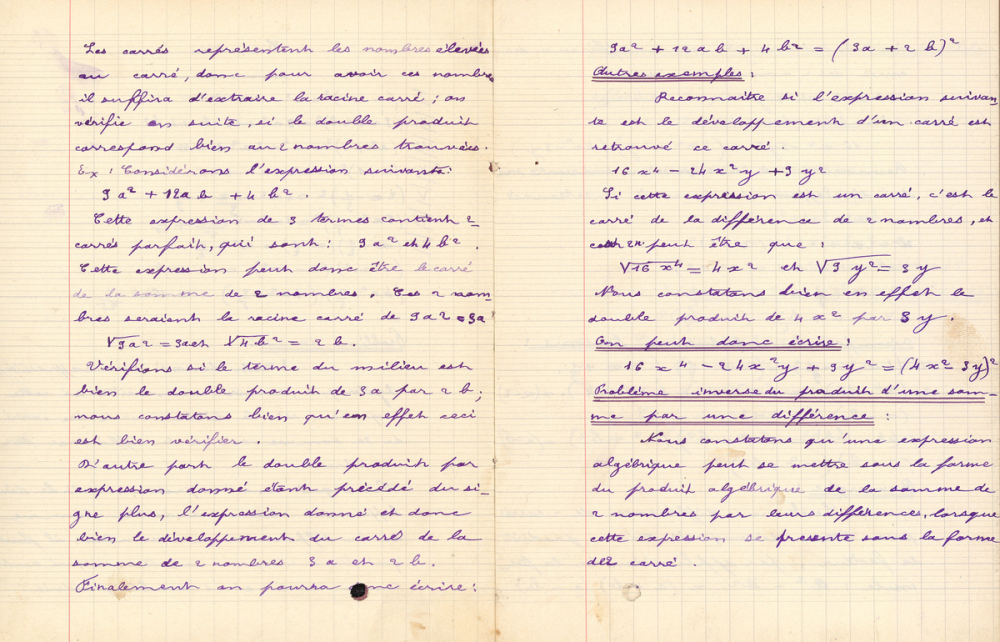 Les carrés représentent les nombres élevées
au carré, donc pour avoir ces nombre
il suffira d'extraire la racine carré ; on
vérifie en suite, si le double produit
correspond bien au 2 nombres trouvées.
Ex : Considérons l'expression suivante:
9 a² + 12 a b + 4 b² .
Cette expression de 3 termes contient 2
carrés parfait, qui sont : 9 a² et 4 b² .
Cette expression peut donc être le carré
de la somme de 2 nombres . Ces 2 nom-
bres seraient la racine carré de 9a² = 3a
√9a² = 3a et √4b² = 2 b.
Vérifions si le terme du milieu est
bien le double produit de 3a par 2 b ;
nous constatons bien qu'en effet ceci
est bien vérifier .
D'autre part le double produit par
expression donné étant précédé du si-
gne plus, l'expression donné et donc
bien le développement du carré de la
somme de 2 nombres 3 a et 2 b.
Finalement on pourra écrire :
9a² + 12 a b + 4 b² = (3a + 2 b)²
Autres exemples :
Reconnaitre si l'expression suivan-
te est le développement d'un carré est
retrouvé ce carré .
16 x⁴ - 24 x² y + 9 y²
Si cette expression est un carré, c'est le
carré de la différence de 2 nombres, et
peut être que :
√16 x⁴ = 4x² et √9 y² = 3 y
Nous constatons bien en effet le
double produit de 4 x² par 3 y.
On peut donc écrire :
16 x⁴ - 24 x² y + 9 y² = (4 x² - 3 y)²
Problème inverse du produit d'une som-
me par une différence :
Nous constatons qu'une expression
algébrique peut se mettre sous la forme
du produit algébrique de la somme de
2 nombres par leurs différences, lorsque
cette expression se présente sous la forme
de 2 carré .